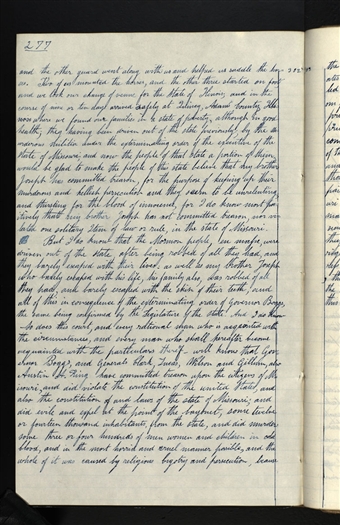 277
and the other guard went along with us and helped us saddle the hor-
ses. Two of us mounted the horses, and the other three started on foot
and we took our change of venue for the State of Illinois, and in the
course of nine or ten days arrived safely at Quincy, Adams County, Illi
nois where we found our families in a state of poverty, although in good
health; they having been driven out of the state previously by the m
urderous militia under the exterminating order of the executive of the
State of Missouri; and now the people of that State a portion of them,
would be glad to make the people of this state believe that my brother
Joseph has committed treason, for the purpose of keeping up their
murderous and hellish persecution and they seem to be unrelenting
and thirsting for the blood of innocence, for I do know most pos-
itively that my brother Joseph has not committed treason, nor vio
lated one solitary item of law or rule, in the state of Missouri.
But I do know that the Mormon people, en masse, were
driven out of the state, after being robbed of all they had, and
they barely escaped with their lives, as well as my brother Joseph
who barely escaped with his life, his family also was robbed of all
they had, and barely escaped with the skin of their teeth, and
all of this in consequence of the exterminating order of Governor Boggs,
the same being confirmed by the Legislature of the State. And I do know
so does this court, and every rational man who is acquainted with
the circumstances, and every man who shall hereafter become
acquainted with the particulars thereof will know that Gov
ernor Boggs, and Generals Clark, Lucas, Wilson and Gillium, also
Austin A. King have committed treason upon the citizens of Mis
souri, and did violate the constitution of the united States, and
also the constitution of and laws of the state of Missouri; and
did exile and expel at the point of the bayonet, some twelve
or fourteen thousand inhabitants, from the state, and did murder
some three or four hundreds of men women and children in cold
blood, and in the most horrid and cruel manner possible, and the
whole of it was caused by religious bigotry and persecution, because